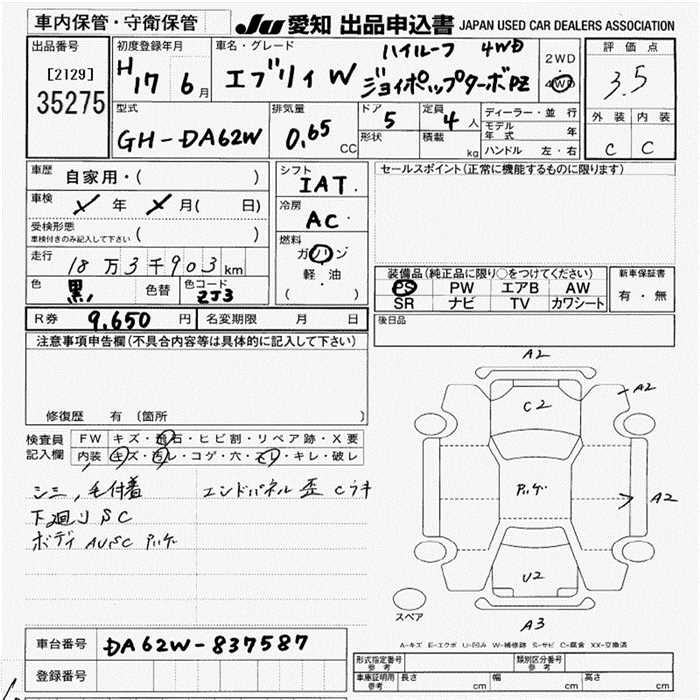 車内保管・守衛保管
JU 愛知 出品申込書 JAPAN USED CAR DEALERS ASSOCIATION
出品番号
[2129]
35275
初度登録年月
H 17 6月
車名・グレード
ハイルーフ 4WD
エブリィ W ジョイポップターボPZ
2WD
4WD
評価点
3.5
外装 内装
C C
型式
GH-DA62W
排気量
0.65 CC
ドア 5
形状
定員 4人
積載 kg
ディーラー・並行
モデル年式 年
ハンドル 左・右
車歴 自家用・( )
車検 年 月( 日)
受検形態
車検付きのみ記入して下さい ( )
走行 18万3千903km
色 黒 色替 色コード ZJ3
シフト
IAT
冷房
AC
燃料
ガソリン
軽・油
( )
セールスポイント(正常に機能するものに限ります)
装備品(純正品に限り○をつけてください)
PS PW エアB AW
SR ナビ TV カワシート
新車保証書
有・無
後日品
R券 9,650円 名変期限 月 日
注意事項申告欄(不具合内容等は具体的に記入して下さい)
修復歴 有 (箇所 )
検査員記入欄
FW キズ・飛石・ヒビ割・リペア跡・X要
内装 キズ・汚レ・コゲ・穴・スレ・キレ・破レ
シミ,毛付着 エンドパネル歪 Cラキ
下廻り SC
ボディ AUSC
A2
A2
C2
A2
U2
A3
スペア
A-キズ E-エクボ U-凹み W-補修跡 S-サビ C-腐食 XX-交換済
車台番号 DA62W-837587
登録番号
形式指定番号 参考
類別区分番号 参考
車庫証明用 参考 長さ cm 幅 cm 高さ cm